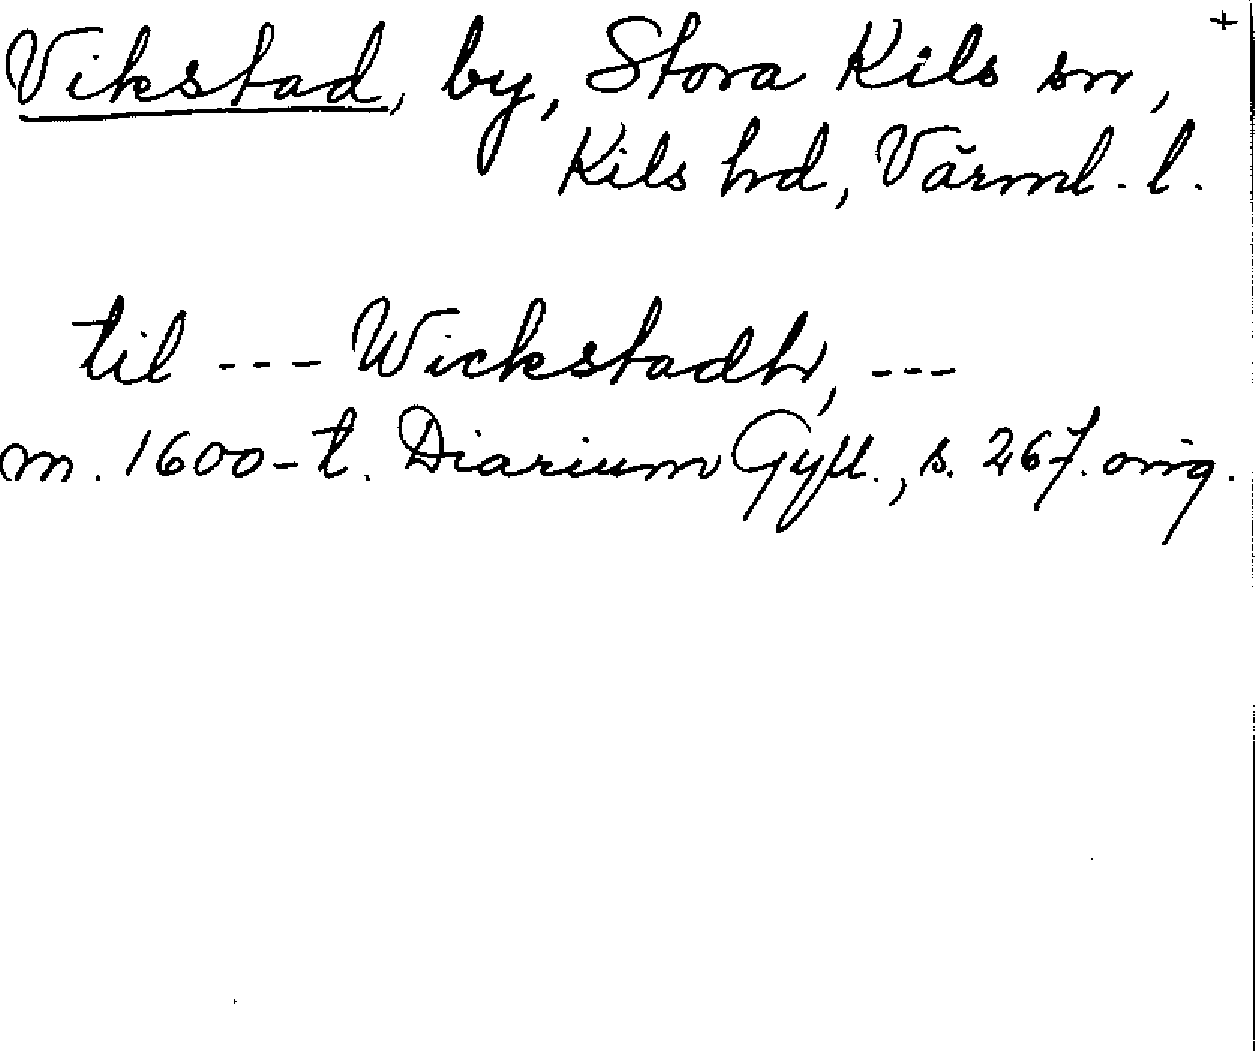 Vikstad, by, Stora Kils sn, +
Kils hd, Värml. l.
til --- Wickstadh, ---
m. 1600-t. Diarium Gyll., s. 267. orig.